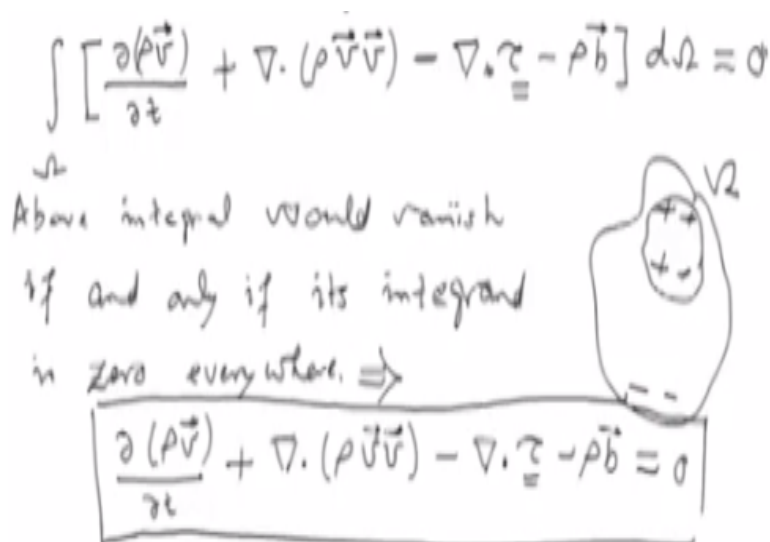 ∫_Ω [ ∂(ρv⃗)/∂t + ∇·(ρv⃗v⃗) − ∇·τ̳ − ρb⃗ ] dΩ = 0
Above integral would vanish
if and only if its integrand
is zero everywhere. ⇒
Ω
+ +
+ -
- -
∂(ρv⃗)/∂t + ∇·(ρv⃗v⃗) − ∇·τ̳ − ρb⃗ = 0